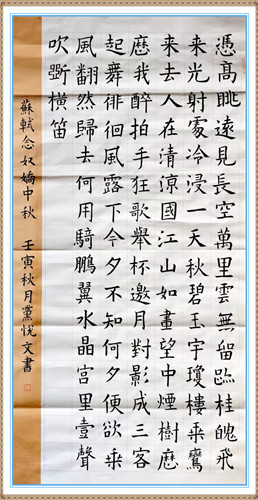 憑高眺遠見長空萬里雲無留跡桂魄飛
來光射處冷浸一天秋碧玉宇瓊樓乘鸞
來去人在清涼國江山如畫望中煙樹歷
歷我醉拍手狂歌舉杯邀月對影成三客
起舞徘徊風露下今夕不知何夕便欲乘
風翻然歸去何用騎鵬翼水晶宮里壹聲
吹斷橫笛
蘇軾念奴嬌中秋 壬寅秋月黨悅文書